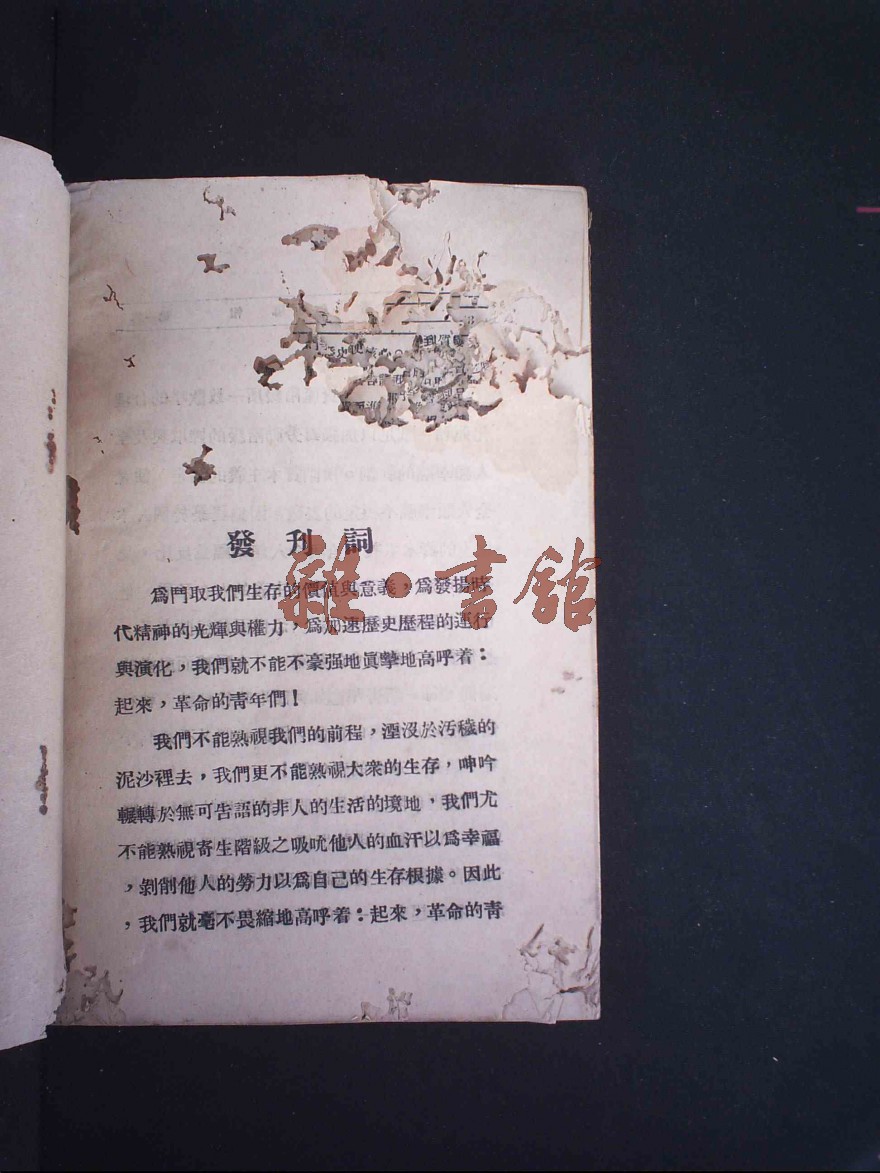 發刊詞
爲鬥取我們生存的價值與意義，爲發揚時
代精神的光輝與權力，爲加速歷史歷程的運行
與演化，我們就不能不豪强地眞摯地高呼着：
起來，革命的靑年們！
我們不能熟視我們的前程，湮沒於汚穢的
泥沙裡去，我們更不能熟視大衆的生存，呻吟
輾轉於無可告語的非人的生活的境地，我們尤
不能熟視寄生階級之吸吮他人的血汗以爲幸福
，剝削他人的勞力以爲自己的生存根據。因此
，我們就毫不畏縮地高呼着：起來，革命的靑
雜·書館